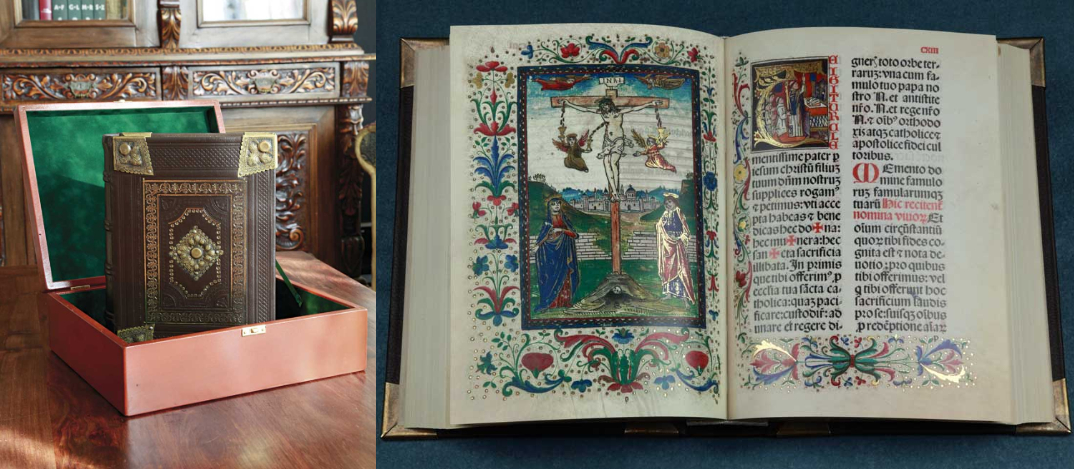 INRI
mentissime pater p
iesum christū filiuȝ
tuum dn̄m nostruȝ
supplices rogamꝰ
⁊ petimus: vti acce
pta habeas ⁊ bene
dicas hec do✠na:
hec mu✠nera: hec
san✠cta sacrificia
illibata. In primis
que tibi offerimꝰ p
ecclia tua sācta ca
tholica: quaȝ paci
ficare: custodir̄: ad
unare et regere di
gneris toto orbe ter-
raruȝ: vna cum fa-
mulo tuo papa no
stro N. et antistite
nr̄o N. et rege nr̄o
N. ⁊ oībꝰ orthodo
xis atqȝ catholice ⁊
apostolice fidei cul
toribus.
Memento do
mine famulo
rum famularumqȝ
tuarū Hic recitent̄
nomina viuoꝝ Et
oīum circūstantiū
quoꝝ tibi fides co-
gnita est ⁊ nota de-
uotio: pro quibus
tibi offerimus: vel
q̄ tibi offerunt hoc
sacrificium laudis
pro se: suisqȝ oībus
p redēptione aīaꝝ